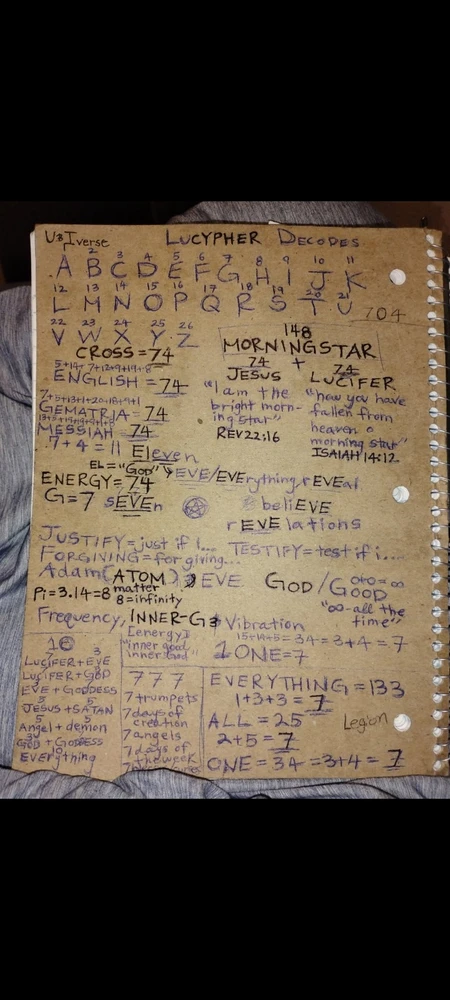 UBIverse LUCYPHER DECODES
1 2 3 4 5 6 7 8 9 10 11
A B C D E F G H I J K
12 13 14 15 16 17 18 19 20 21
L M N O P Q R S T U
704
22 23 24 25 26
V W X Y Z
CROSS = 74
5+14+7+12+9+19+8
ENGLISH = 74
7+5+13+1+20+18+9+1
GEMATRIA = 74
13+5+19+19+9+1+8
MESSIAH = 74
7+4=11 ELeven
EL="God"
148
MORNINGSTAR
74 + 74
JESUS LUCIFER
"I am the
bright morn-
ing star"
REV 22:16
"how you have
fallen from
heaven o
morning star"
ISAIAH 14:12
EVE/EVErything rEVEal
ENERGY=74
G=7 sEVEn
beliEVE
rEVElations
JUSTIFY=just if i... TESTIFY=test if i....
FORGIVING=for giving...
Adam(ATOM) EVE
matter
Pi=3.14=8
8=infinity
GOD/GOOD
o+o=∞
"∞-all the
time"
Frequency, INNER-G & Vibration
[energy]
"inner good
inner God"
15+14+5=34=3+4=7
1 ONE=7
10
7 3
LUCIFER+EVE
LUCIFER+GOD
EVE+GODDESS
5 5
JESUS+SATAN
5 5
Angel+demon
GOD+GODDESS
10
EVErything
7 7 7
7 trumpets
7 days of
creation
7 angels
7 days of
the week
EVERYTHING=133
1+3+3=7
ALL=25
2+5=7
Legion
ONE=34=3+4=7